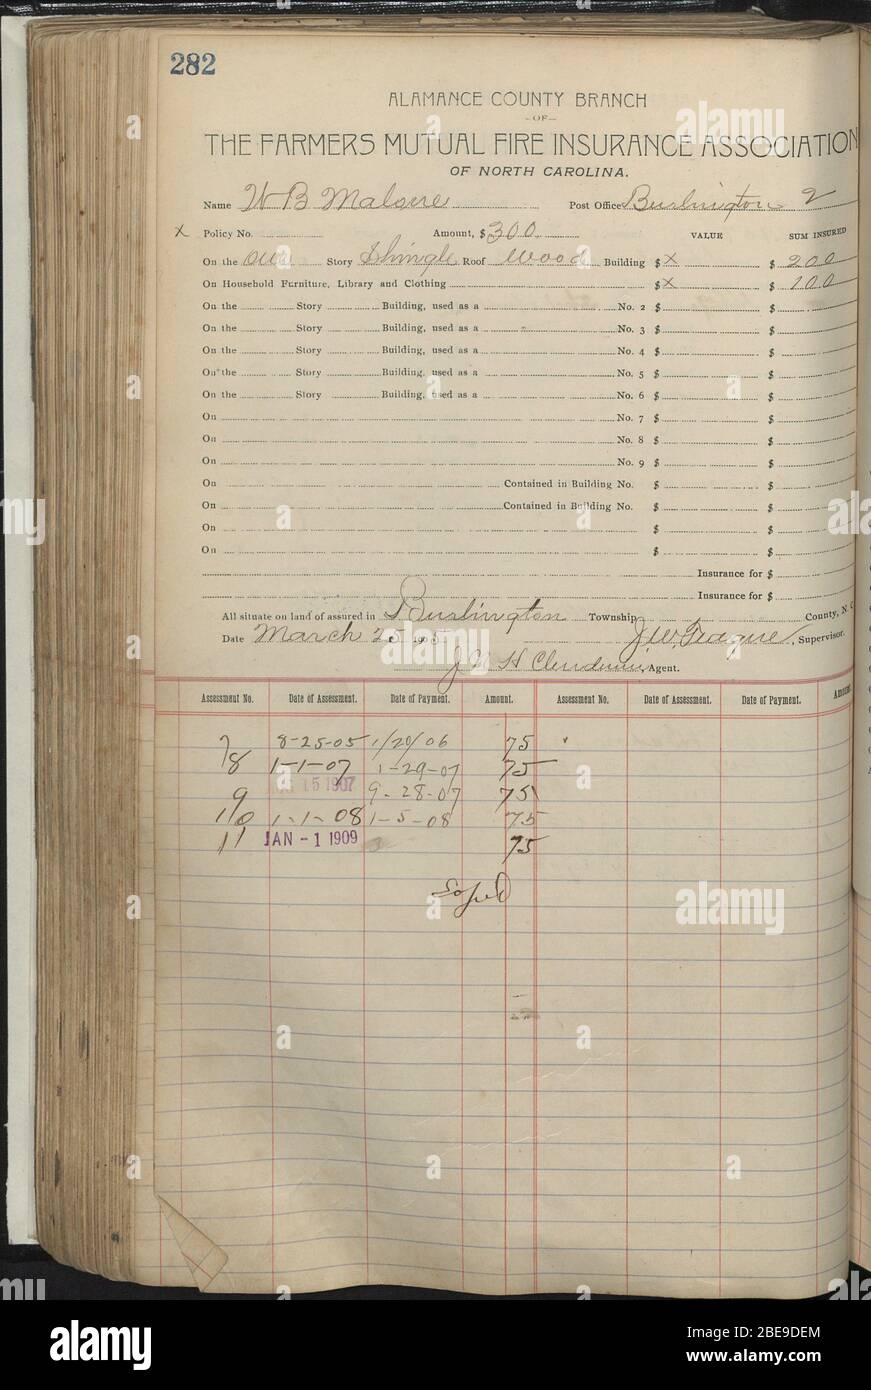 282
ALAMANCE COUNTY BRANCH
-OF-
THE FARMERS MUTUAL FIRE INSURANCE ASSOCIATION
OF NORTH CAROLINA.
Name W B Malone Post Office Burlington 2
x Policy No. Amount, $ 300 VALUE SUM INSURED
On the one Story Shingle Roof Wood Building $ x $ 200
On Household Furniture, Library and Clothing $ x $ 100
On the Story Building, used as a No. 2 $ $
On the Story Building, used as a No. 3 $ $
On the Story Building, used as a No. 4 $ $
On the Story Building, used as a No. 5 $ $
On the Story Building, used as a No. 6 $ $
On No. 7 $ $
On No. 8 $ $
On No. 9 $ $
On Contained in Building No. $ $
On Contained in Building No. $ $
On $ $
On $ $
Insurance for $
Insurance for $
All situate on land of assured in Burlington Township County, N. C
Date March 25 1905 J W. Teague, Supervisor.
J N H Clendenin, Agent.
Assessment No. Date of Assessment. Date of Payment. Amount. Assessment No. Date of Assessment. Date of Payment. Amount.
7 8-25-05 1/20/06 75
8 1-1-07 1-29-07 75
9 15 1907 9-28-07 75
10 1-1-08 1-5-08 75
11 JAN -1 1909 75
alamy
Image ID: 2BE9DEM
www.alamy.com